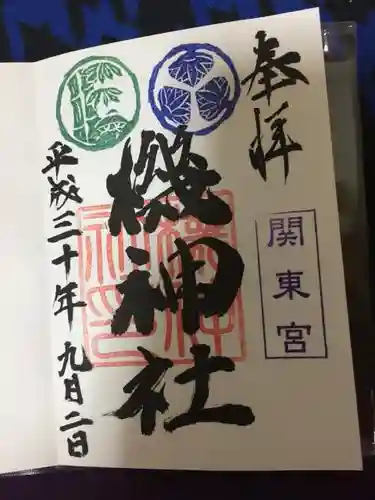 奉拝
関東宮
機神社
平成三十年九月二日